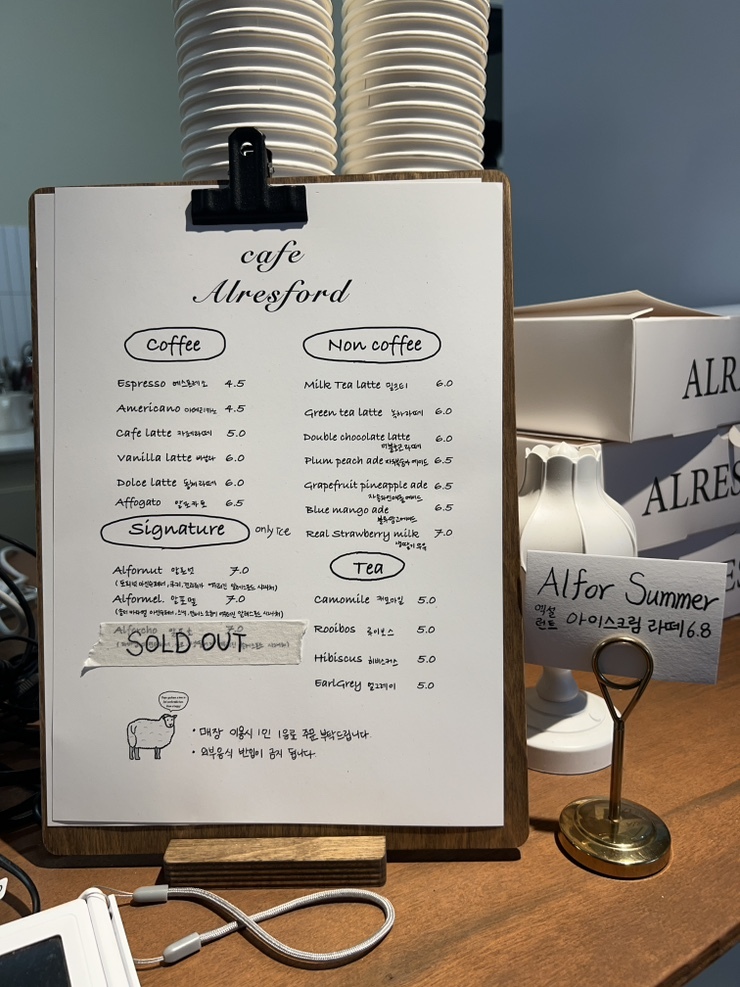 cafe
Alresford
Coffee
Espresso 에스프레소 4.5
Americano 아메리카노 4.5
Cafe latte 카페라떼 5.0
Vanilla latte 바닐라 6.0
Dolce latte 돌체라떼 6.0
Affogato 아포가토 6.5
Signature only Ice
Alfornut 알포넛 7.0
Alformel 알포멜 7.0
Alforcho 7.0
SOLD OUT
Non coffee
Milk Tea latte 밀크티 6.0
Green tea latte 녹차라떼 6.0
Double chocolate latte 6.0
더블초코라떼
Plum peach ade 자두복숭아에이드 6.5
Grapefruit pineapple ade 6.5
자몽파인애플에이드
Blue mango ade 6.5
블루망고에이드
Real Strawberry milk 7.0
생딸기우유
Tea
Camomile 캐모마일 5.0
Rooibos 루이보스 5.0
Hibiscus 히비스커스 5.0
EarlGrey 얼그레이 5.0
• 매장 이용시 1인 1음료 주문 부탁드립니다.
• 외부음식 반입이 금지 됩니다.
ALR
ALRES
Alfor Summer
엑설런트 아이스크림 라떼 6.8